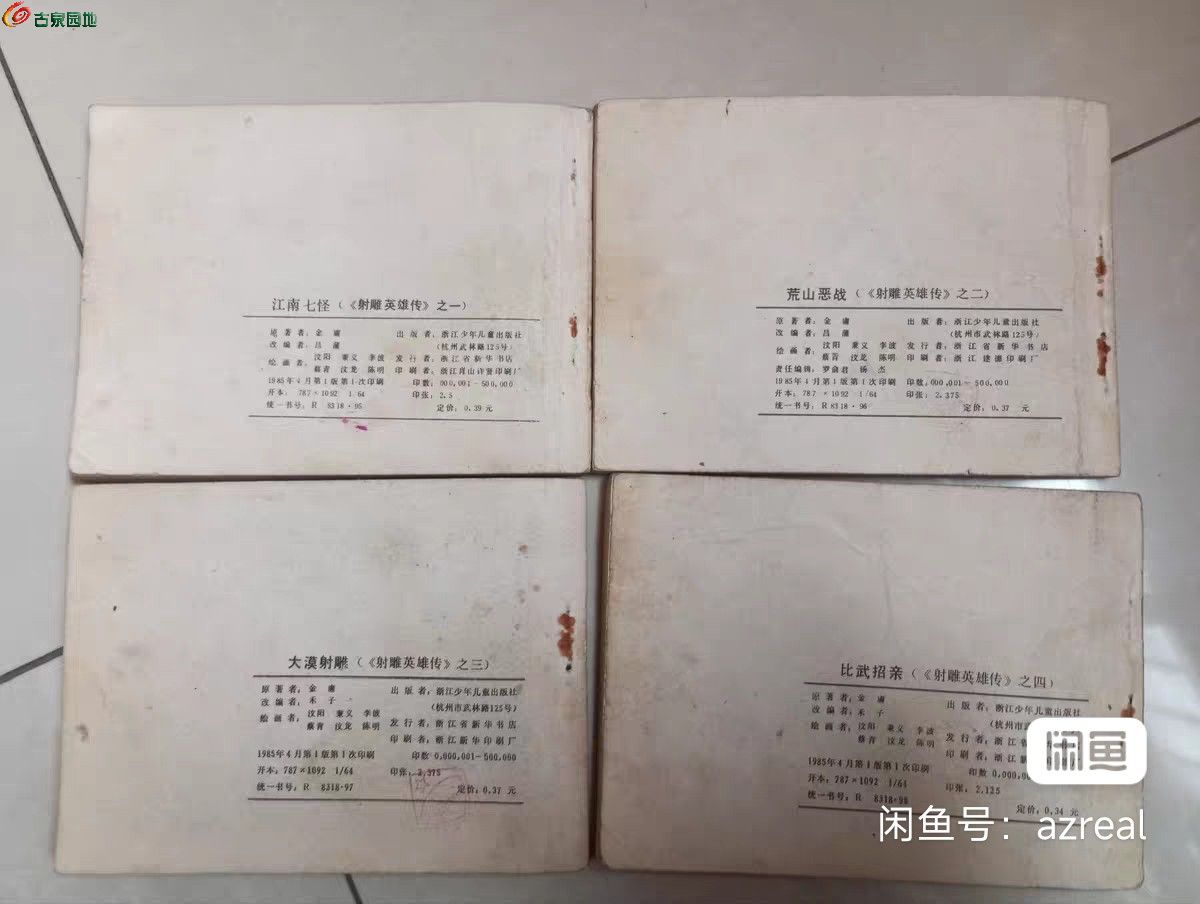 古泉园地
江南七怪（《射雕英雄传》之一）
原著者：金庸 出版者：浙江少年儿童出版社
改编者：吕蓬 （杭州市武林路125号）
绘画者：汶阳 秉义 李波 发行者：浙江省新华书店
蔡青 汶龙 陈明 印刷者：浙江肖山许贤印刷厂
1985年4月第1版第1次印刷 印数：000,001-500,000
开本：787×1092 1/64 印张：2.5
统一书号：R 8318·95 定价：0.39元
荒山恶战（《射雕英雄传》之二）
原著者：金庸 出版者：浙江少年儿童出版社
改编者：吕蓬 （杭州市武林路125号）
绘画者：汶阳 秉义 李波 发行者：浙江省新华书店
蔡菁 汶龙 陈明 印刷者：浙江建德印刷厂
责任编辑：罗俞君 杨杰
1985年4月第1版第1次印刷 印数：000,001-500,000
开本：787×1092 1/64 印张：2.375
统一书号：R 8318·96 定价：0.37 元
大漠射雕（《射雕英雄传》之三）
原著者：金庸 出版者：浙江少年儿童出版社
改编者：禾子 （杭州市武林路125号）
绘画者：汶阳 秉义 李波
蔡菁 汶龙 陈明 发行者：浙江省新华书店
印刷者：浙江新华印刷厂
1985年4月第1版第1次印刷 印数 0,000,001-500,000
开本：787×1092 1/64 印张：2.375
统一书号：R 8318·97 定价：0.37 元
比武招亲（《射雕英雄传》之四）
原著者：金庸 出版者：浙江少年儿童出版社
改编者：禾子 （杭州市武
绘画者：汶阳 秉义 李波 发行者：浙江省
蔡菁 汶龙 陈明 印刷者：浙江
1985年4月第1版第1次印刷 印数 0,000,0
开本：787×1092 1/64 印张：2.125
统一书号：R 8318·98 定价：0.34 元
闲鱼
闲鱼号：azreal